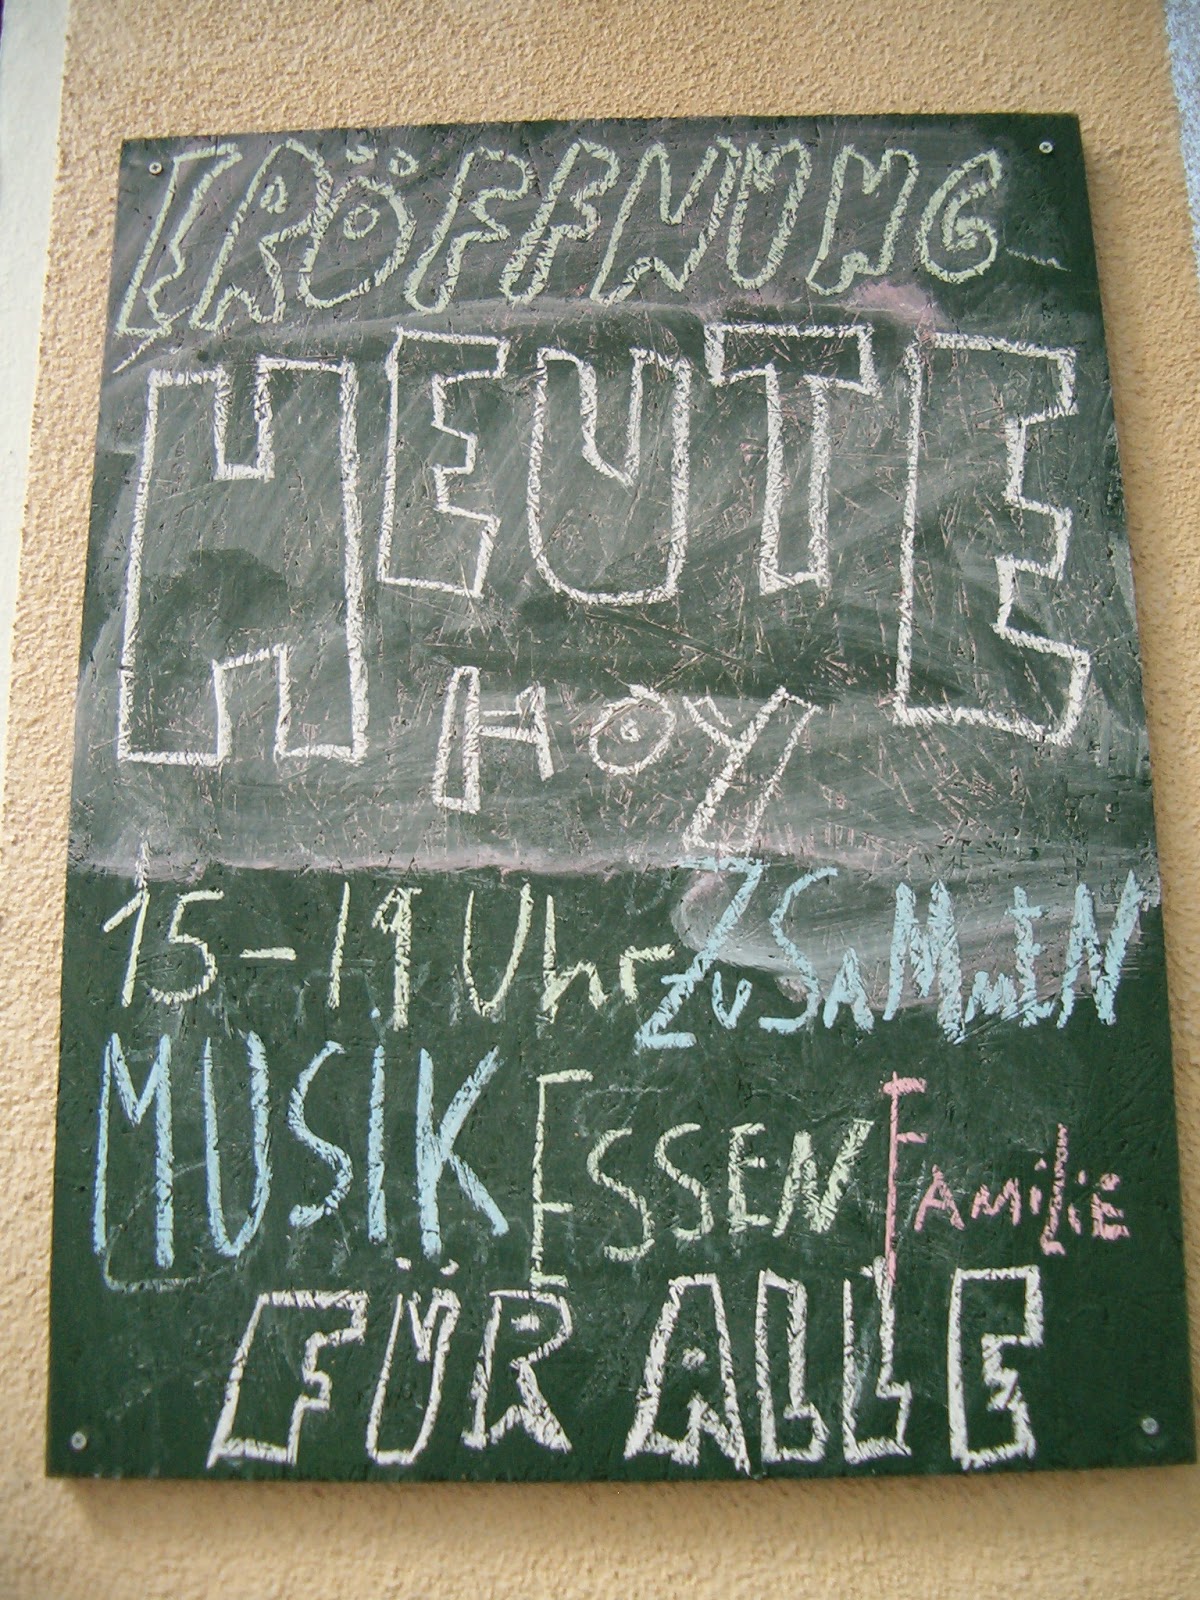 ERÖFFNUNG
HEUTE
HOY
15-19 Uhr ZUSAMMEN
MUSIK ESSEN FAMiLiE
FÜR ALLE